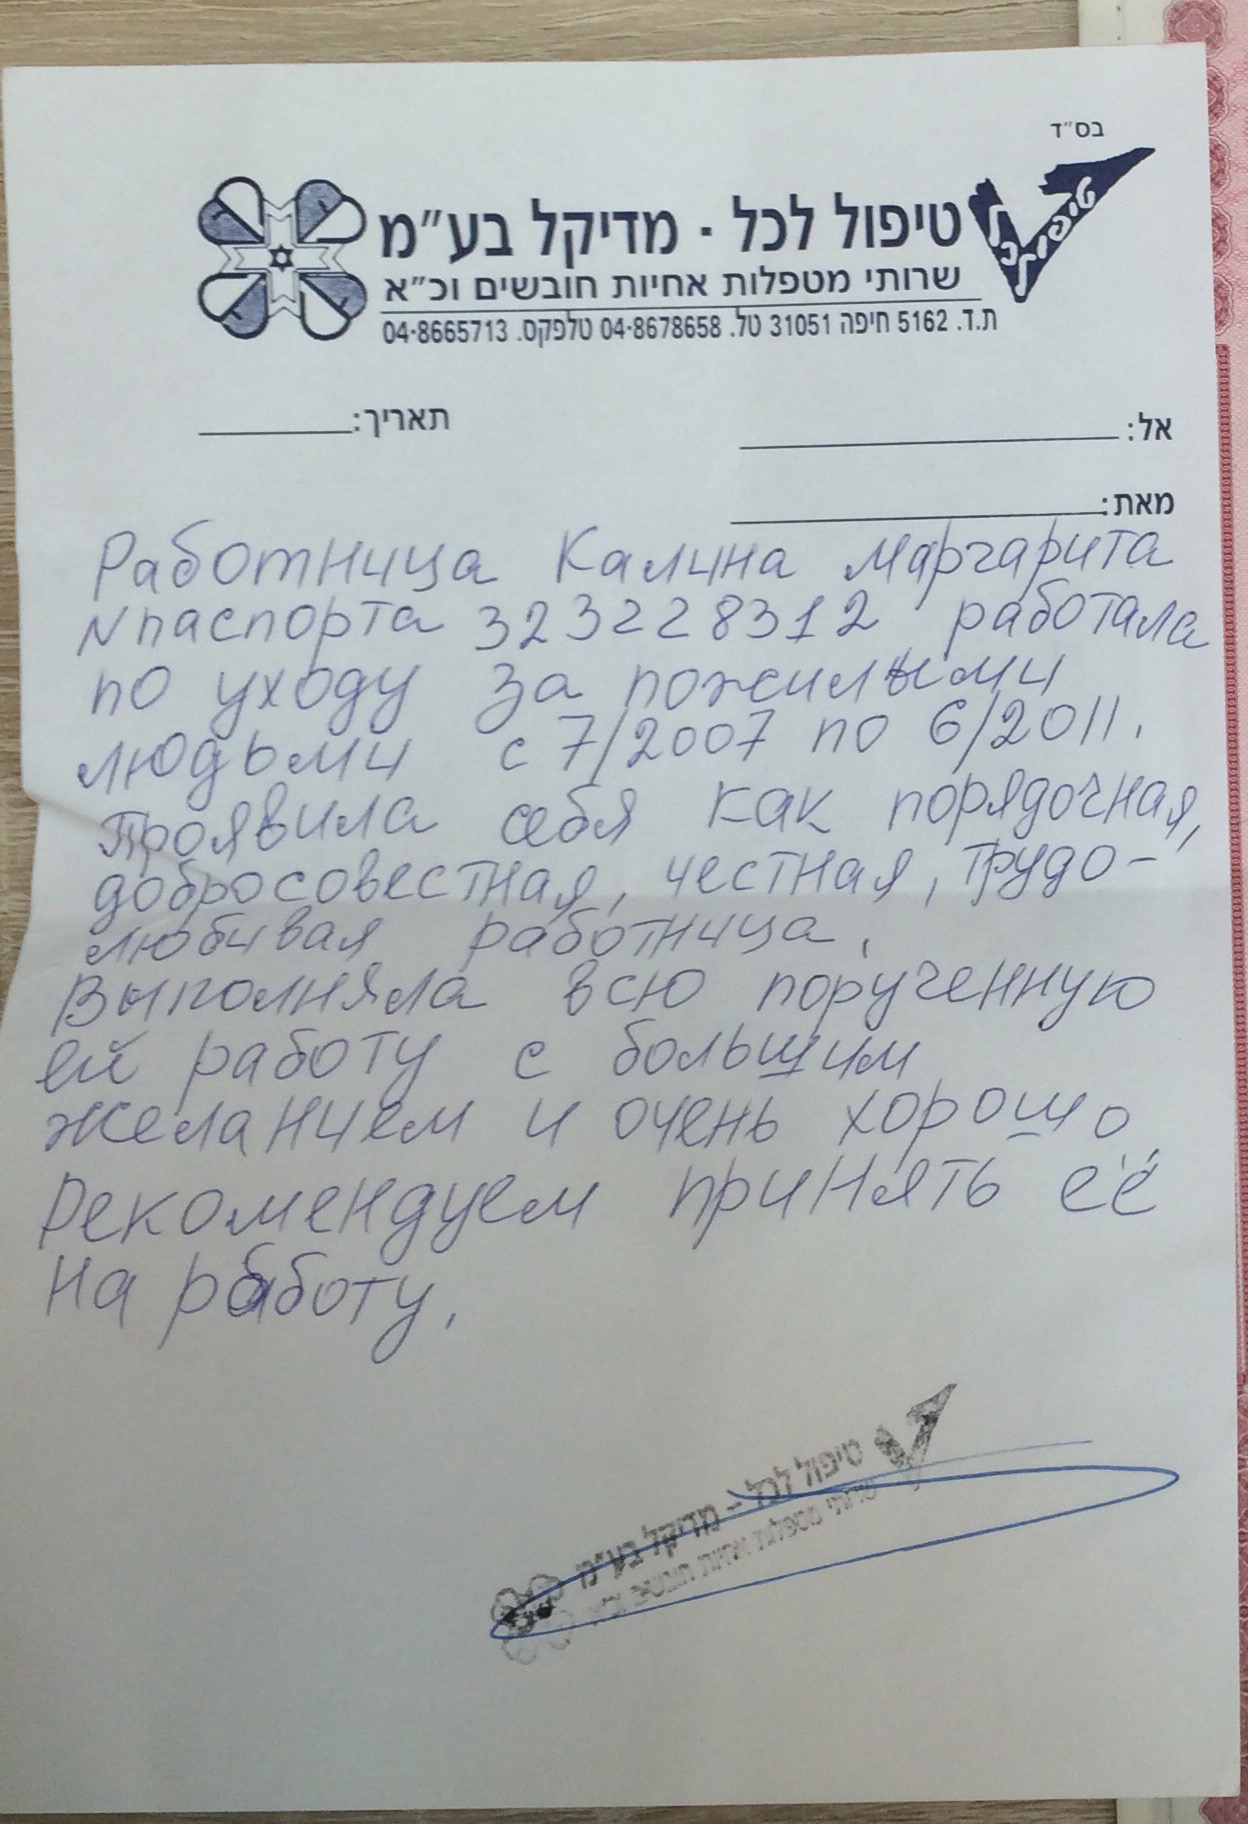 בס"ד
טיפול לכל
טיפול לכל - מדיקל בע"מ
שרותי מטפלות אחיות חובשים וכ"א
ת.ד. 5162 חיפה 31051 טל. 04-8678658 טלפקס. 04-8665713
אל: תאריך:
מאת:
Работница Калина Маргарита
N паспорта 323228312 работала
по уходу за пожилыми
людьми с 7/2007 по 6/2011.
Проявила себя как порядочная,
добросовестная, честная, трудо-
любивая работница.
Выполняла всю порученную
ей работу с большим
желанием и очень хорошо.
Рекомендуем принять её
на работу.
טיפול לכל - מדיקל בע"מ
שרותי מטפלות אחיות חובשים וכ"א